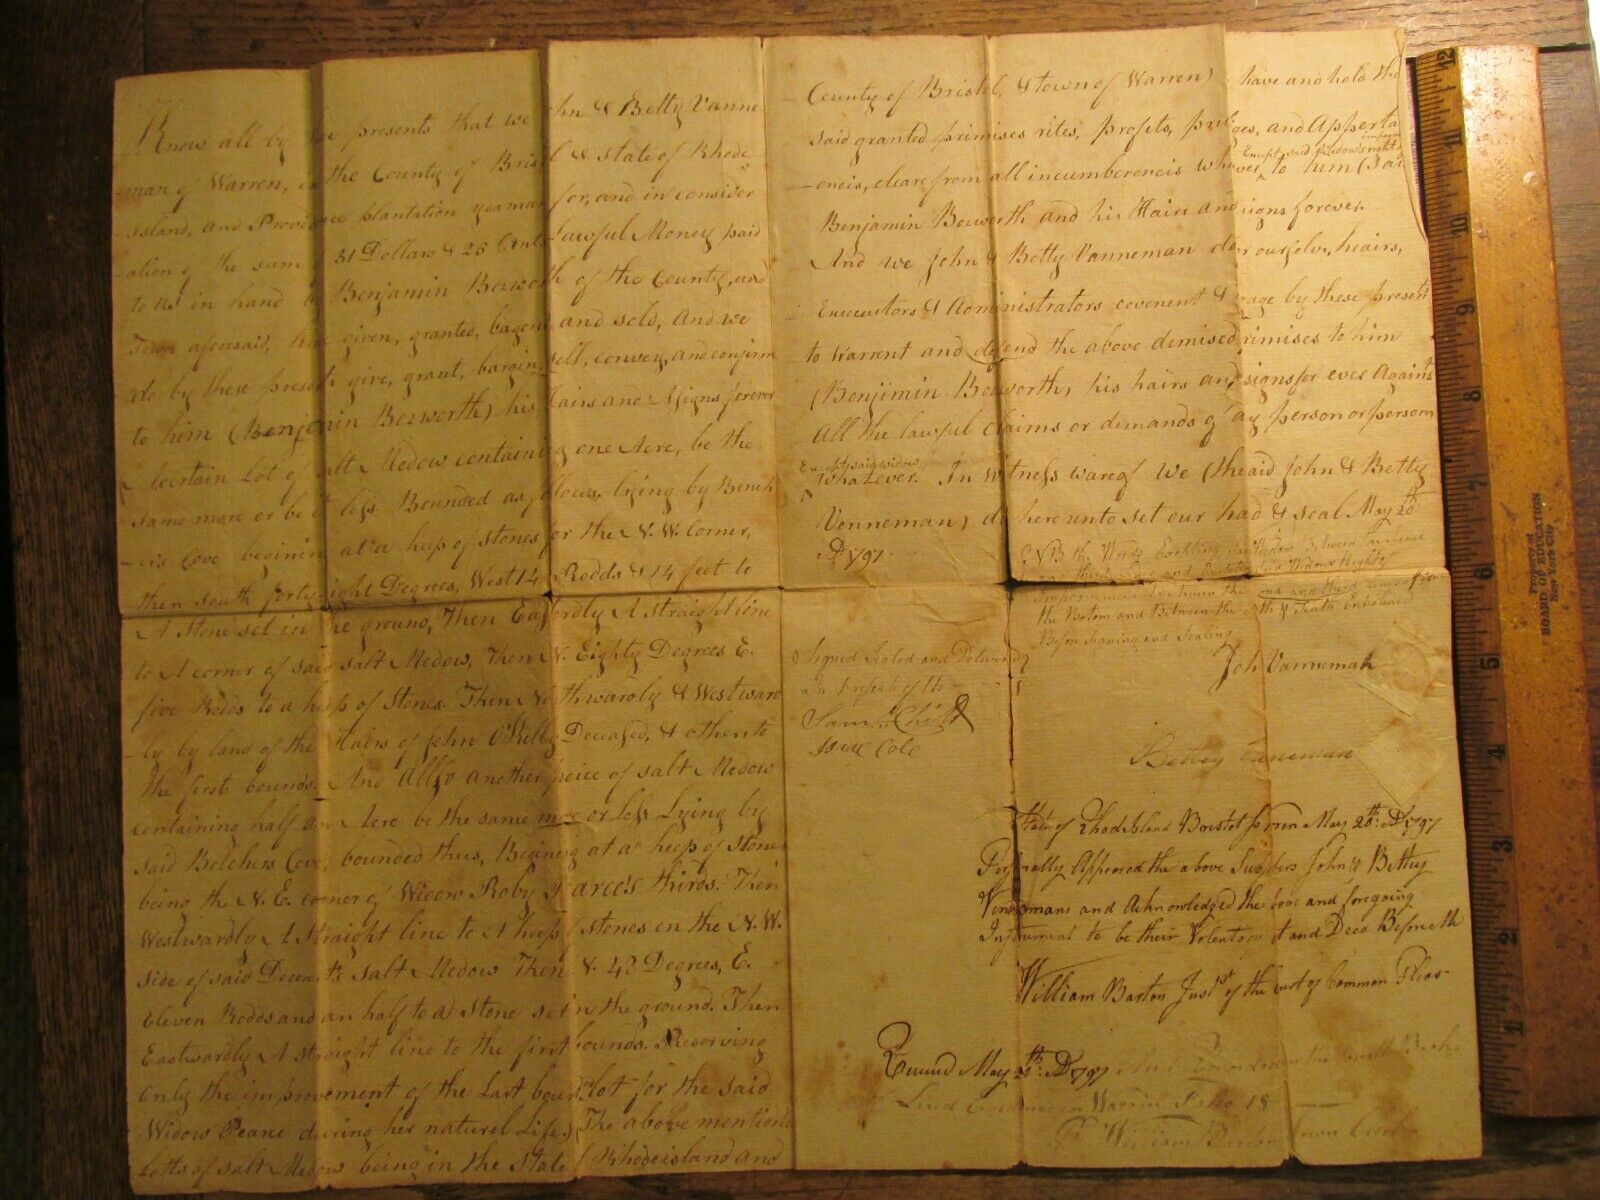 Know all by presents that we John & Betty Vanne
-man of Warren, in the County of Bristol & state of Rhode
-island, and Providence plantation yeaman for, and in consider
-ation of the sum of 31 Dollars & 25 Cents Lawful Money paid
to us in hand by Benjamin Bozworth of the County, and
Town aforesaid, have given, granted, and sold, And we
do by these presents give, grant, bargin, sell, convey, and confirm
to him (Benjemin Bozworth) his Hairs and Asigns forever
A certain Lot of salt Medow containing one Acre, be the
same more or be it less. Bounded as follows. lying by
Cove begining at a heep of stones for the N.W. Corner,
then south forty-eight Degrees, West 14 Rodds & 14 feet to
A Stone set in the ground, Then Eastwardly A straight line
to A corner of said salt Medow, Then N. Eighty Degrees E.
five Rodds to a heep of Stones. Then Northwardly & Westward
-ly by land of the Hairs of John O'Kelly Deceased, & others to
the first bounds. And Allso another peice of salt Medow
containing half an Acre be the same more or less Lying by
said Belchers Cove, bounded thus, Begining at a heep of Stones
being the N.E. corner of Widow Roby Pearce's thirds. Then
Westwardly A Straight line to A heep of stones on the N.W.
side of said Deceas'd's salt Medow Then N. 48 Degrees, E.
Eleven Rodds and an half to a Stone set in the ground. Then
Eastwardly A straight line to the first bounds. Reserving
only the improvement of the Last bound lot for the said
Widow Pearce during her naturel Life.) The above mentiond
Lotts of salt Medow being in the State of Rhodeisland and
County of Bristol, & town of Warren) have and hold the
said granted primises rites, profits, and Apperta
-encis, cleare from all incumberencis Except said Widows right to him (Said
Benjamin Bozworth and his Hairs and signs forever.
And we John & Betty Vanneman do for ourselves, heairs,
Executors & Administrators covenent & by these presents
to Warrent and defend the above demised primises to him
(Benjimin Bosworth, his hairs and signs for ever Against
All the lawful claims or demands of any person or persons
Except said widow
whatever. In witness wareof we (the said John & Betty
Venneman) do hereunto set our had & seal May 20th
AD 1797
NB the Words Between
Said Widows Rights
Between the and third
the Bottom and Between the & Tenth
Before signing and sealing
Signed Sealed and Deliver'd
In presents of Us
Sam Child
Cole
John Vanneman
Bettey Vaneman
State of Rhod Island Bristol May 20th AD 1797
Personally Appeared the above John & Bettey
and Acknowledged the above and foregoing
Instrument to be their Volentary act and Deed Before
William Barton Just of the Court of Common Pleas
May AD 1797 And
Land Warren Folio 18
William Town Clerk
12
11
10
9
8
7
6
5
4
3
2
1
Property of
BOARD OF EDUCATION
New York City